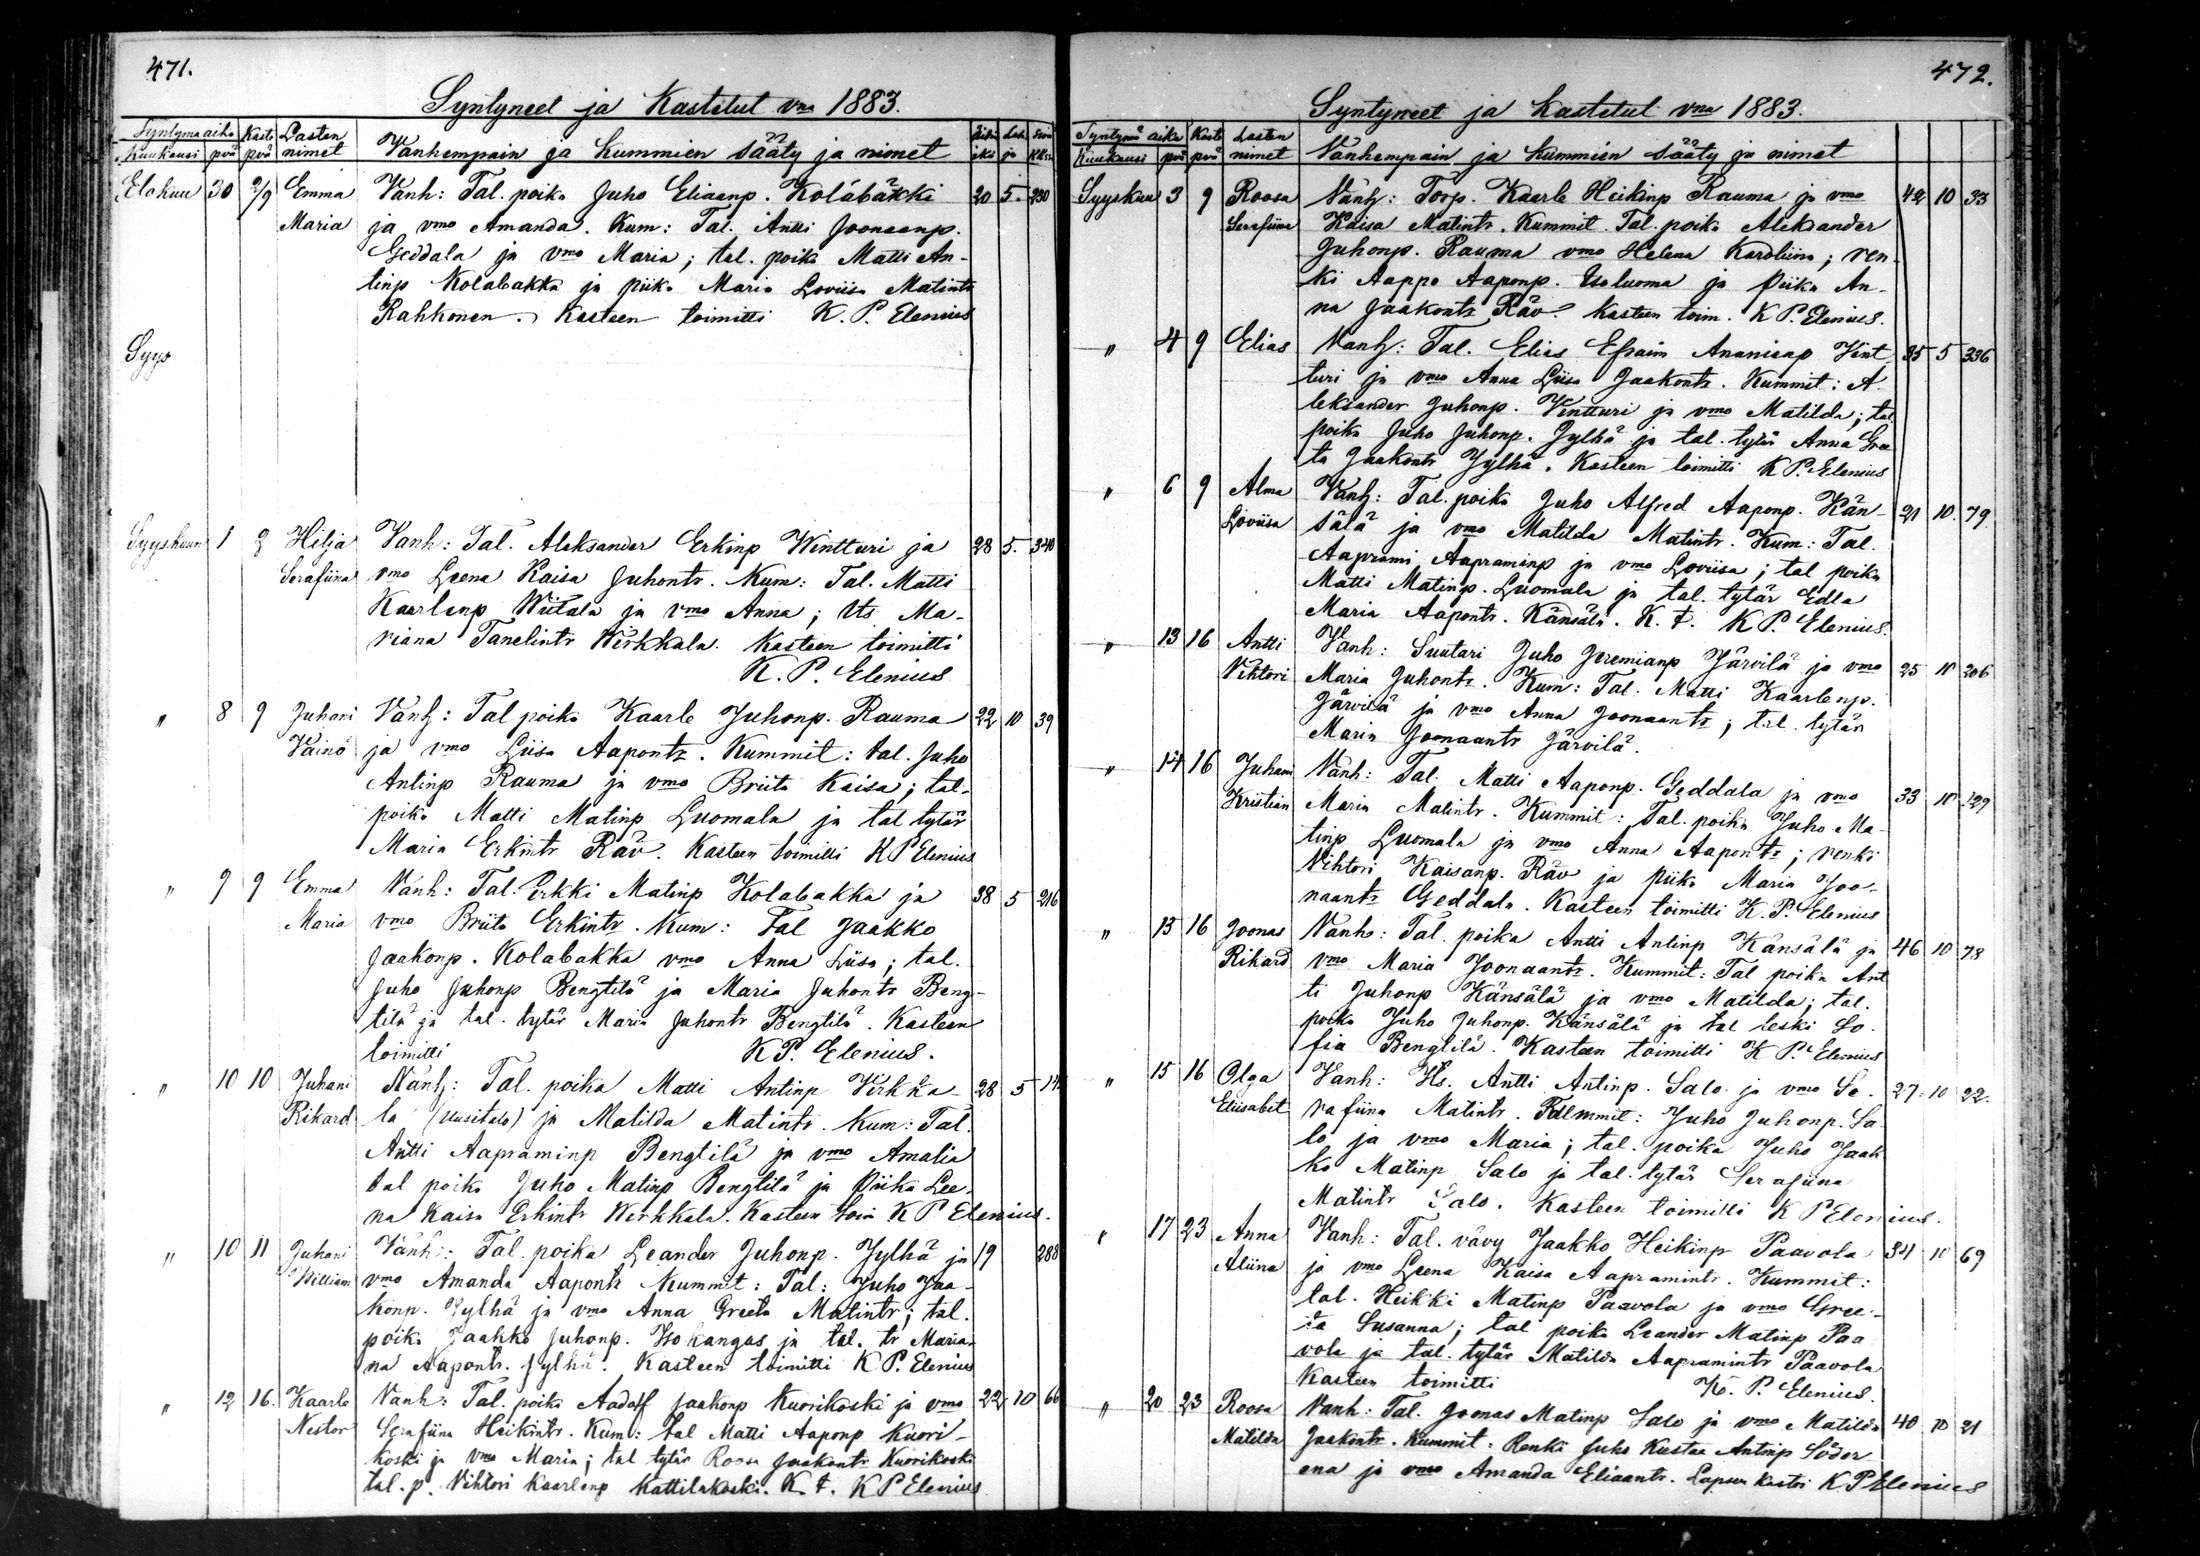 471.
Syntyneet ja Kastetut vna 1883.
Syntymä aika Kaste Lasten Äidin Lah. Seur.
Kuukausi pvä pvä nimet Vanhempain ja kummien sääty ja nimet ikä ja KKssa
Elokuu 30 2/9 Emma Vanh: Tal. poika Juho Eliaanp. Kolabäkki 20 5. 230
Maria ja vmo Amanda. Kum: Tal. Antti Joonaanp.
Geddala ja vmo Maria; tal. poika Matti An-
tinp Kolabakka ja piika Maria Loviisa Matintr
Rahkonen. Kasteen toimitti K. P. Elenius
Syys
Syyskuun 1 2 Hilja Vanh: Tal. Aleksander Erkinp Wintturi ja 28 5. 340
Serafiina vmo Leena Kaisa Juhontr. Kum: Tal. Matti
Kaarlenp Wiitala ja vmo Anna; Its. Ma-
riana Tanelintr Werkkala. Kasteen toimitti
K. P. Elenius
" 8 9 Juhani Vanh: Tal poika Kaarle Juhonp. Rauma 22 10 39
Väinö ja vmo Liisa Aapontr. Kummit: tal. Juho
Antinp Rauma ja vmo Briita Kaisa; tal.
poika Matti Matinp Luomala ja tal tytär
Maria Erkintr Räv. Kasteen toimitti K P Elenius
" 9 9 Emma Vanh: Tal. Erkki Matinp Kolabakka ja 38 5 216
Maria vmo Briita Erkintr. Kum: Tal Jaakko
Jaakonp. Kolabakka vmo Anna Liisa; tal.
Juho Juhonp Bengtilä ja Maria Juhontr Beng-
tilä ja tal. tytär Maria Juhontr Bengtilä. Kasteen
toimitti K P. Elenius.
" 10 10 Juhani Vanh: Tal. poika Matti Antinp Verkka- 28 5 14
Rikard la (Uusitalo) ja Matilda Matintr. Kum: Tal.
Antti Aapraminp Bengtilä ja vmo Amalia
tal poika Juho Matinp Bengtilä ja Piika Lee-
na Kaisa Erkintr Werkkala. Kasteen toim K P Elenius.
" 10 11 Juhani Vanh: Tal. poika Leander Juhonp. Jylhä ja 19 288
William vmo Amanda Aapontr Kummit: Tal: Juho Jaa-
konp. Jylhä ja vmo Anna Greeta Matintr; tal.
poika Jaakko Juhonp. Isokangas ja tal. tr Maria-
na Aapontr. Jylhä. Kasteen toimitti K P. Elenius
" 12 16. Kaarle Vanh: Tal. poika Aadolf Jaakonp Kuorikoski ja vmo 22 10 66
Nestor Serafiina Heikintr. Kum: tal Matti Aaponp Kuori-
koski ja vmo Maria; tal tytär Roosa Jaakontr Kuorikoski
tal. p. Vihtori Kaarlenp Mattilakoski. K. t. K P Elenius
472.
Syntyneet ja kastetut vna 1883.
Syntymä aika Kaste Lasten
Kuukausi pvä pvä nimet Vanhempain ja kummien sääty ja nimet
Syyskuu 3 9 Roosa Vanh: Torp. Kaarle Heikinp Rauma ja vmo 42 10 33
Serafiina Kaisa Matintr. Kummit. Tal. poika Aleksander
Juhonp. Rauma vmo Helena Karoliina; ren-
ki Aappo Aaponp. Isoluoma ja Piika An-
na Jaakontr Räv. Kasteen toim. K P. Elenius.
" 4 9 Elias Vanh: Tal. Elias Efraim Ananianp Vint 35 5 336
turi ja vmo Anna Liisa Jaakontr. Kummit: A
leksander Juhonp. Vintturi ja vmo Matilda; tal
poika Juho Juhonp. Jylhä ja tal. tytär Anna Gree
ta Jaakontr Jylhä. Kasteen toimitti K P. Elenius
" 6 9 Alma Vanh: Tal. poika Juho Alfred Aaponp. Kän- 21 10. 79
Loviisa sälä ja vmo Matilda Matintr. Kum: Tal.
Aaprami Aapraminp ja vmo Loviisa; tal poika
Matti Matinp. Luomala ja tal. tytär Edla
Maria Aapontr. Känsälä. K. t. K P. Elenius.
" 13 16 Antti Vanh: Suutari Juho Jeremianp Järvilä ja vmo 25 10 206
Vihtori Maria Juhontr. Kum: Tal. Matti Kaarlenp.
Järvilä ja vmo Anna Joonaantr; tal. tytär
Maria Joonaantr Järvilä.
" 14 16 Juhani Vanh: Tal. Matti Aaponp. Geddala ja vmo 33 10 129
Kristian Maria Matintr. Kummit: Tal. poika Juho Ma-
tinp Luomala ja vmo Anna Aapontr; renki
Vihtori Kaisanp. Räv ja piika Maria Joo-
naantr Geddala. Kasteen toimitti K. P. Elenius
" 13 16 Joonas Vanh: Tal. poika Antti Antinp Känsälä ja 46 10 78
Rikard vmo Maria Joonaantr. Kummit: Tal poika Ant
ti Juhonp Känsälä ja vmo Matilda; tal.
poika Juho Juhonp. Känsälä ja tal leski So-
fia Bengtilä. Kasteen toimitti K P. Elenius
" 15 16 Olga Vanh: Its. Antti Antinp. Salo ja vmo Se- 27 10 22.
Eliisabet rafiina Matintr. Kummit: Juho Juhonp. Sa-
lo ja vmo Maria; tal. poika Juho Jaak
ko Matinp Salo ja tal. tytär Serafiina
Matintr Salo. Kasteen toimitti K P Elenius.
" 17 23 Anna Vanh: Tal. vävy Jaakko Heikinp Paavola 34 10 69
Aliina ja vmo Leena Kaisa Aapramintr. Kummit:
tal. Heikki Matinp Paavola ja vmo Gree-
ta Susanna; tal poika Leander Matinp Paa
vola ja tal. tytär Matilda Aapramintr Paavola
Kasteen toimitti K. P. Elenius
" 20 23 Roosa Vanh: Tal. Joonas Matinp Salo ja vmo Matilda 40 10 21
Matilda Jaakontr. Kummit: Renki Juho Kustaa Antinp Söder
ena ja vmo Amanda Eliaantr. Lapsen kastoi K P Elenius